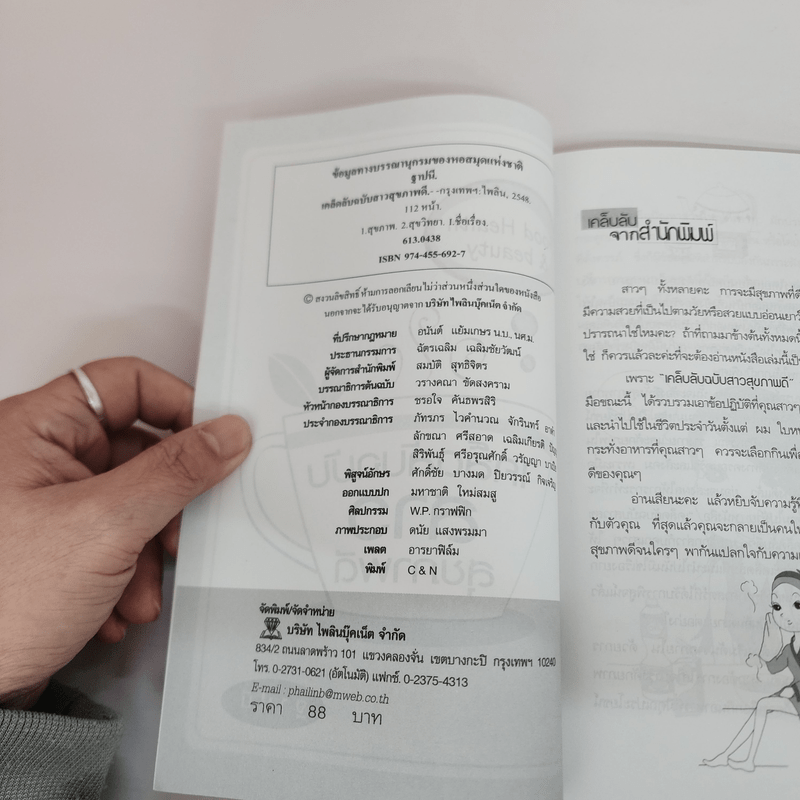 ข้อมูลทางบรรณานุกรมของหอสมุดแห่งชาติ
ฐาปนี.
เคล็ดลับฉบับสาวสุขภาพดี.- -กรุงเทพฯ: ไพลิน, 2548.
112 หน้า.
1.สุขภาพ. 2.สุขวิทยา. I.ชื่อเรื่อง.
613.0438
ISBN 974-455-692-7
© สงวนลิขสิทธิ์ ห้ามการลอกเลียนไม่ว่าส่วนหนึ่งส่วนใดของหนังสือ
นอกจากจะได้รับอนุญาตจาก บริษัท ไพลินบุ๊คเน็ต จำกัด
ที่ปรึกษากฎหมาย อนันต์ แย้มเกษร น.บ., นศ.ม.
ประธานกรรมการ ฉัตรเฉลิม เฉลิมชัยวัฒน์
ผู้จัดการสำนักพิมพ์ สมบัติ สุทธิจิตร
บรรณาธิการต้นฉบับ วรางคณา ชัดสงคราม
หัวหน้ากองบรรณาธิการ ชรอใจ คันธพรสิริ
ประจำกองบรรณาธิการ ภัทรภร ไวคำนวณ จักรินทร์
ลักขณา ศรีสอาด เฉลิมเกียรติ
สิริพันธุ์ ศรีอรุณศักดิ์ วรัญญา
พิสูจน์อักษร ศักดิ์ชัย บางมด ปิยวรรณ์ กิจเจริญ
ออกแบบปก มหาชาติ ใหม่สมสู
ศิลปกรรม W.P. กราฟฟิก
ภาพประกอบ ดนัย แสงพรมมา
เพลต อารยาฟิล์ม
พิมพ์ C & N
จัดพิมพ์/จัดจำหน่าย
บริษัท ไพลินบุ๊คเน็ต จำกัด
834/2 ถนนลาดพร้าว 101 แขวงคลองจั่น เขตบางกะปิ กรุงเทพฯ 10240
โทร. 0-2731-0621 (อัตโนมัติ) แฟกซ์. 0-2375-4313
E-mail : phailinb@mweb.co.th
ราคา 88 บาท
เคล็บลับ
จากสำนักพิมพ์
สาวๆ ทั้งหลายคะ การจะมีสุขภาพที่ดี
มีความสวยที่เป็นไปตามวัยหรือสวยแบบอ่อนเยาว์
ปรารถนาใช่ไหมคะ? ถ้าที่ถามมาข้างต้นทั้งหมดนี้
ใช่ ก็ควรแล้วละค่ะที่จะต้องอ่านหนังสือเล่มนี้
เพราะ "เคล็บลับฉบับสาวสุขภาพดี"
มือขณะนี้ ได้รวบรวมเอาข้อปฏิบัติที่คุณสาวๆ
และนำไปใช้ในชีวิตประจำวันตั้งแต่ ผม
กระทั่งอาหารที่คุณสาวๆ ควรจะเลือกกินเพื่อ
ดีของคุณๆ
อ่านเสียนะคะ แล้วหยิบจับความรู้
กับตัวคุณ ที่สุดแล้วคุณจะกลายเป็นคนใหม่
สุขภาพดีจนใครๆ พากันแปลกใจกับความ